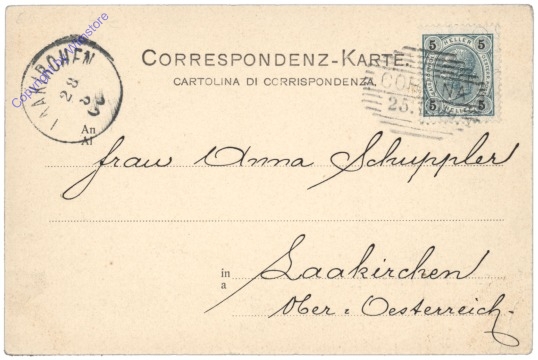 CORRESPONDENZ-KARTE.
CARTOLINA DI CORRISPONDENZA.
LAAKIRCHEN
28
5 HELLER 5
5 HELLER 5
25.
An
Al
Frau Anna Schuppler
in
a
Laakirchen
Ober-Oesterreich.